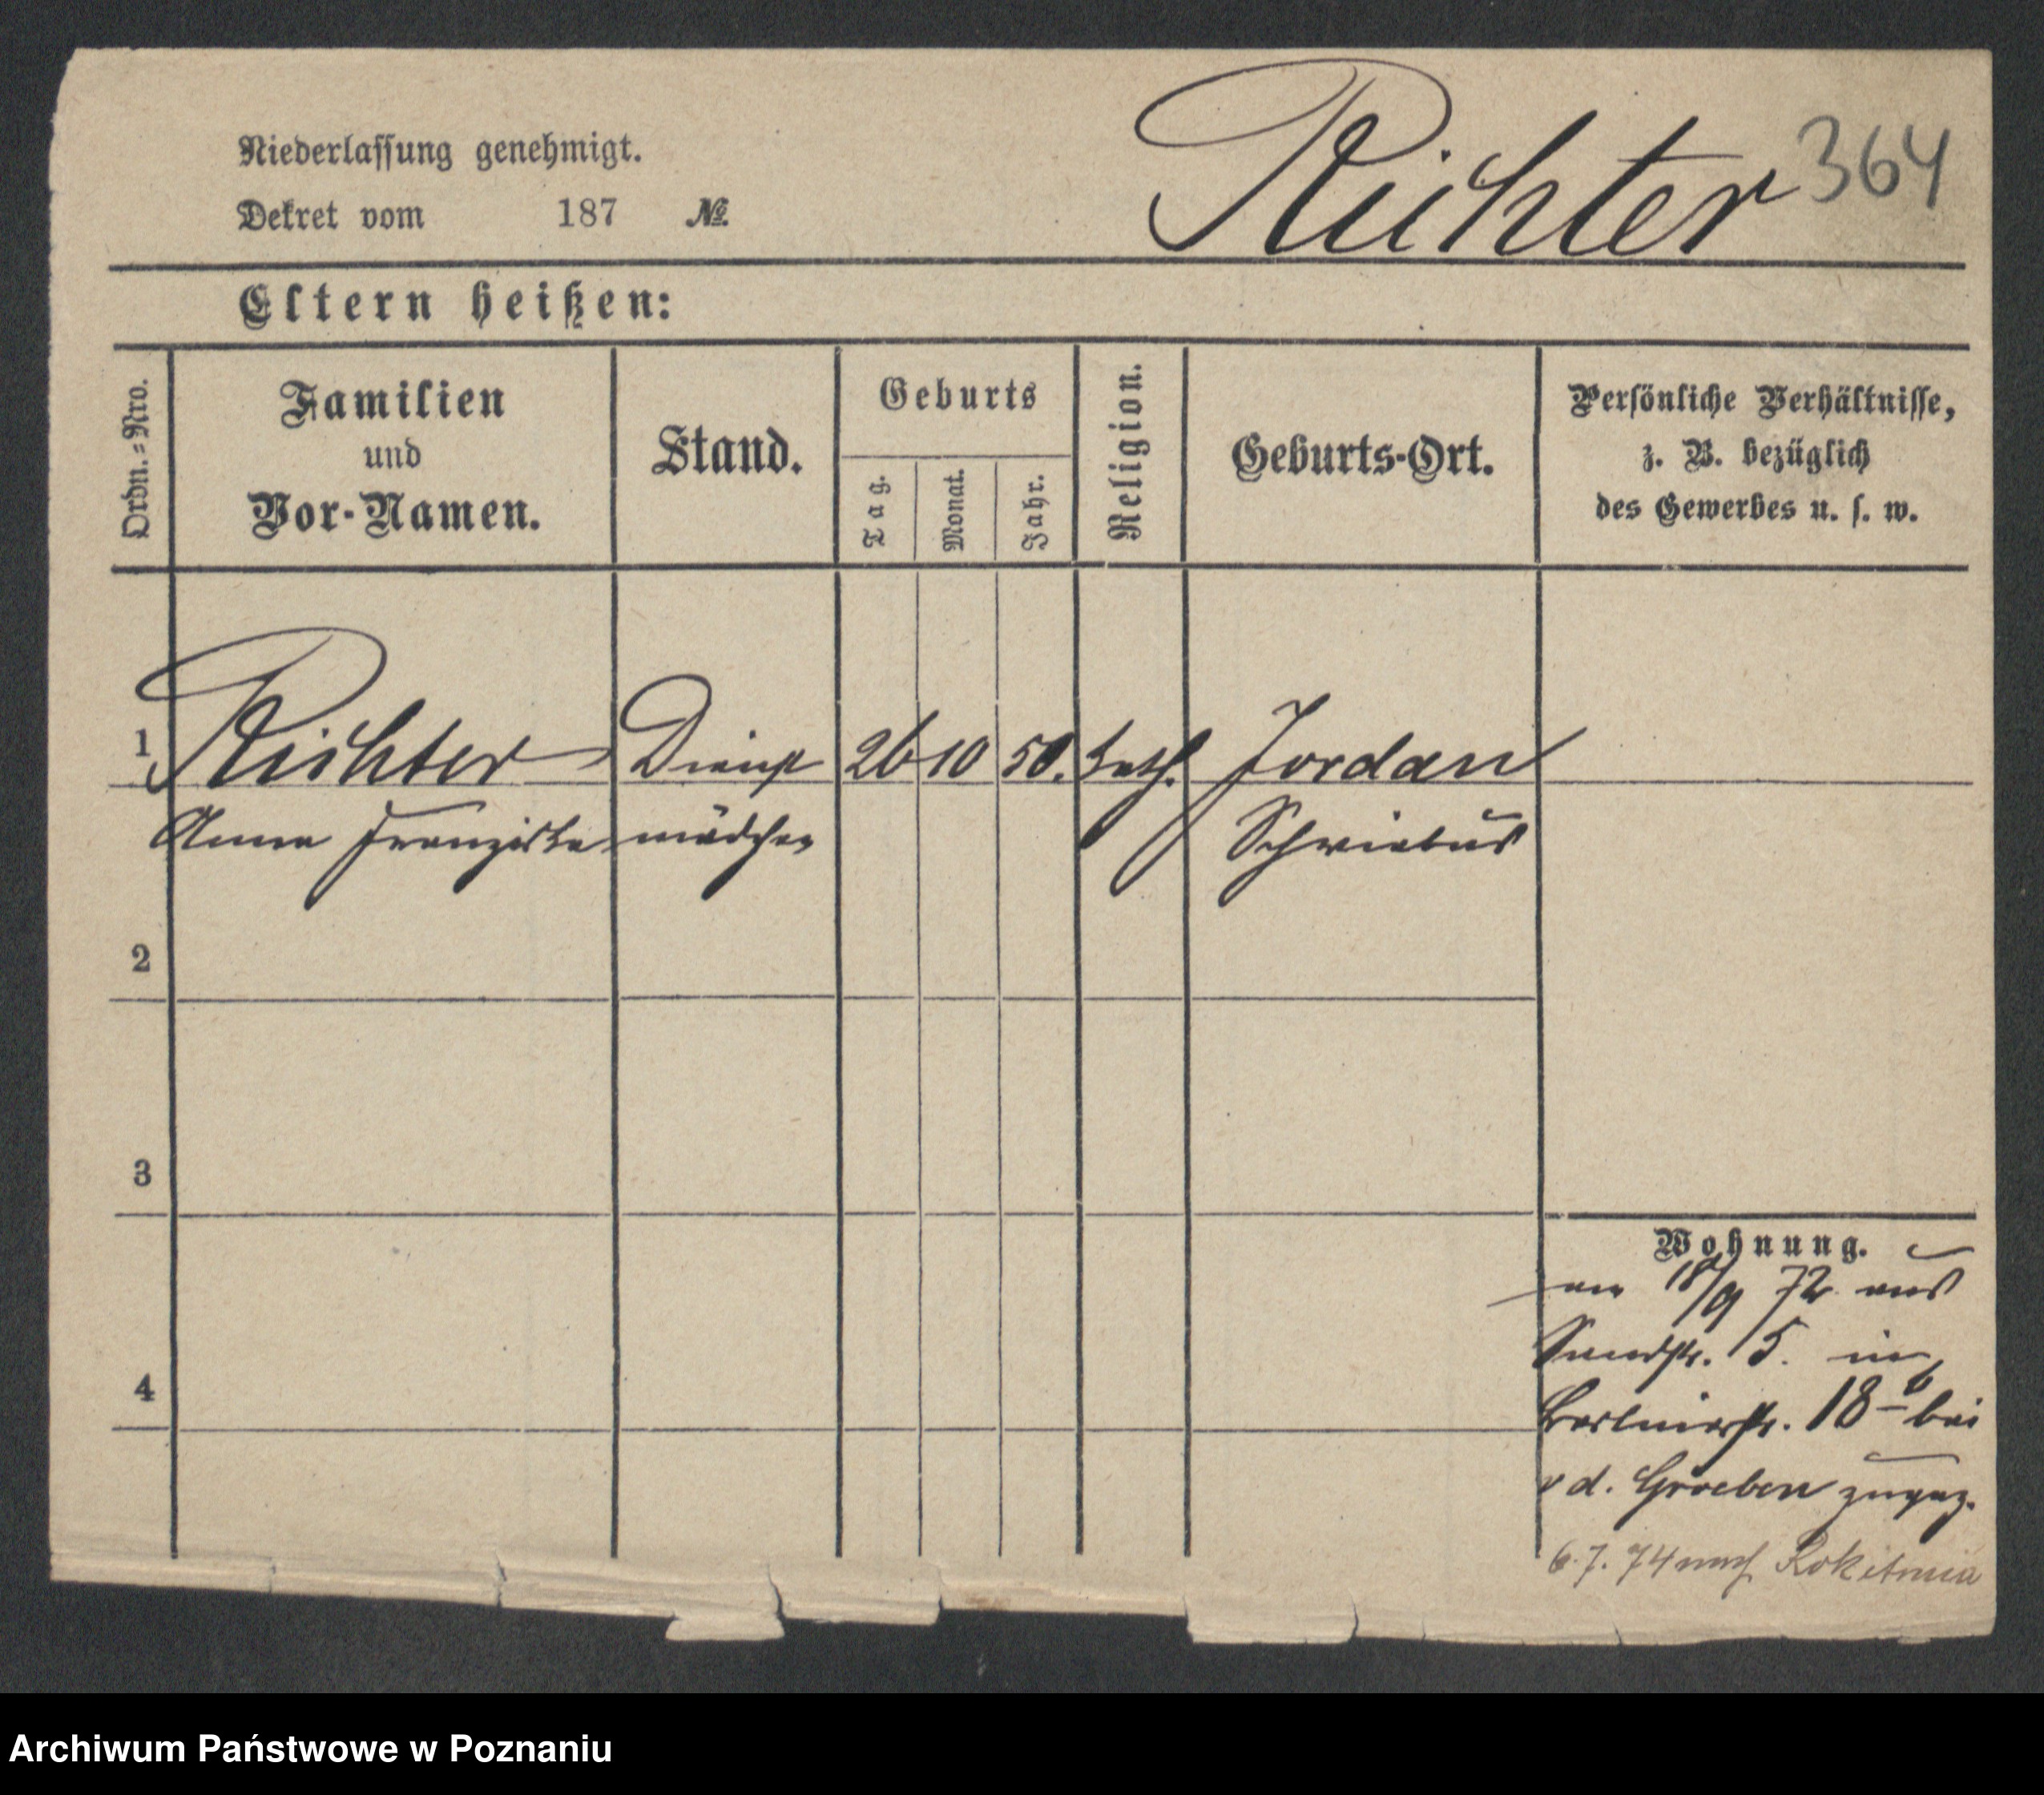 Niederlassung genehmigt.
Dekret vom 187 №
Richter 364
Eltern heißen:
Ordn.=Nro.
Familien
und
Vor-Namen.
Stand.
Geburts
Tag.
Monat.
Jahr.
Religion.
Geburts-Ort.
Persönliche Verhältnisse,
z. B. bezüglich
des Gewerbes u. s. w.
1 Richter Dienst 26 10 50. kath. Jordan
Anna Franziska mädchen Schwiebus
2
3
4
Wohnung.
am 18/9 72 aus
Sandstr. 5. in
Berlinerstr. 18 b bei
v d. Groeben zugez.
6.7.74 nach Rokitnica
Archiwum Państwowe w Poznaniu